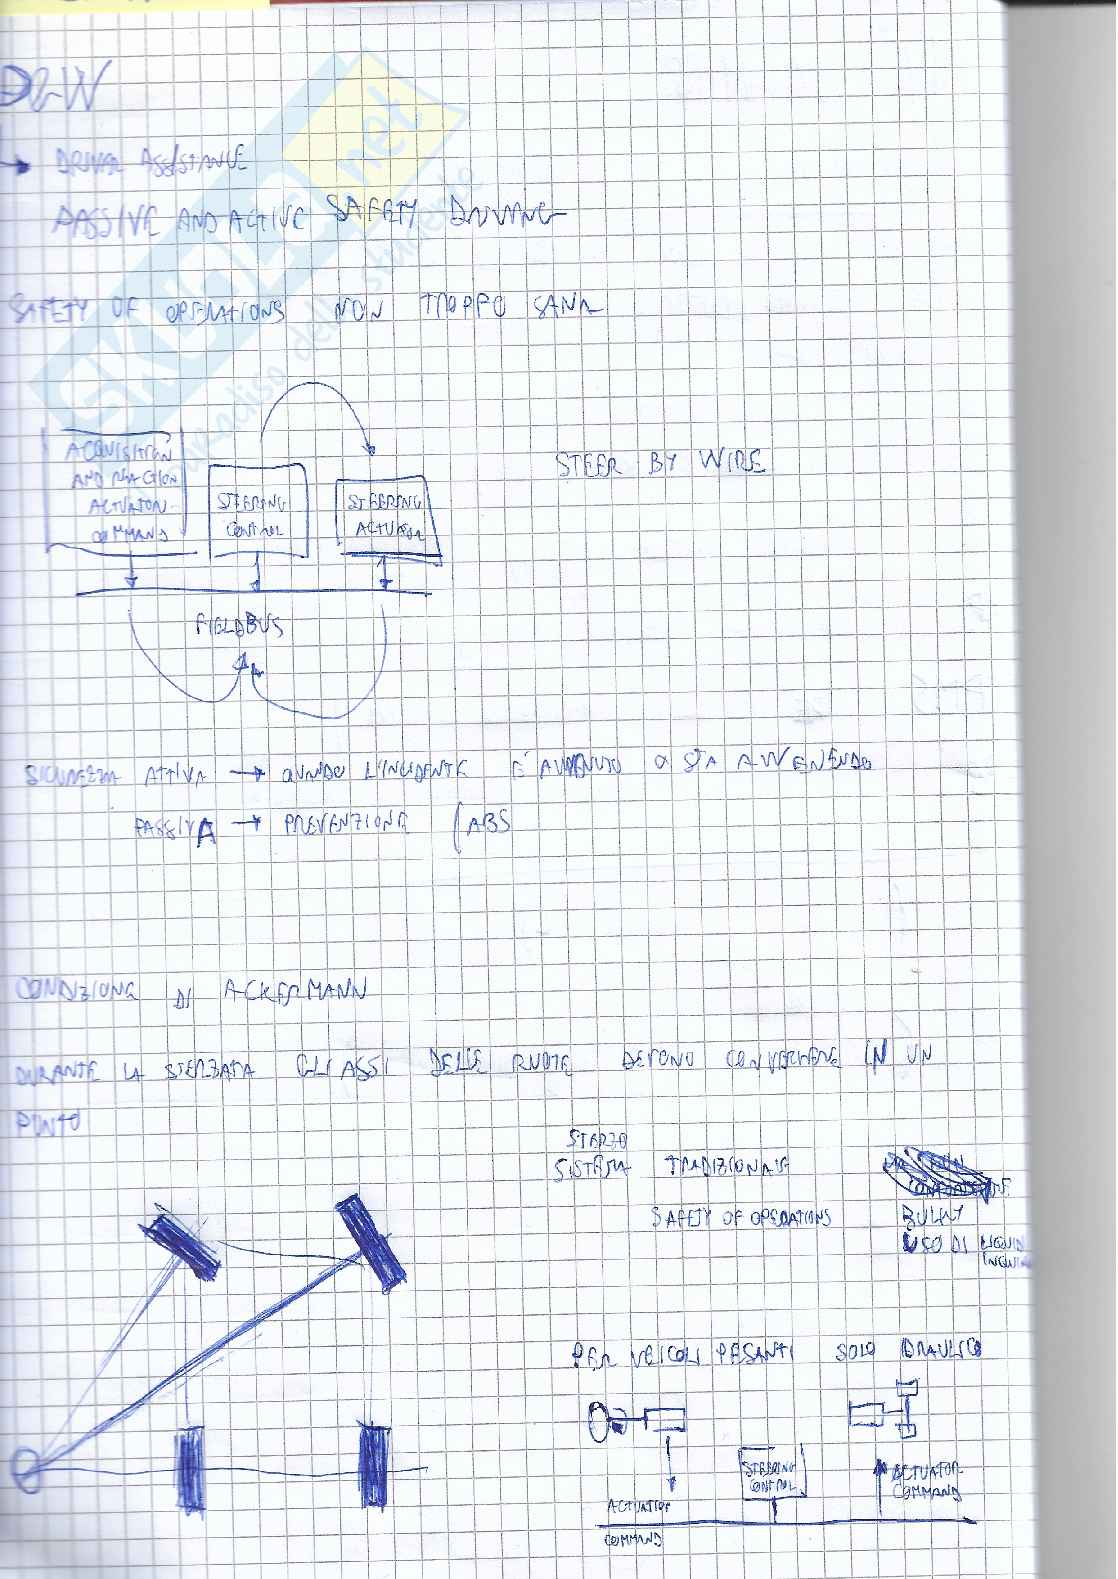 DBW
→ DRIVER ASSISTANCE
PASSIVE AND ACTIVE SAFETY DRIVING
SAFETY OF OPERATIONS NON TROPPO SANA
SKUOLA.net
ACQUISITION
AND REACTION
ACTUATON
COMMAND
STEERING
CONTROL
STEERING
ACTUATOR
STEER BY WIRE
FIELDBUS
SICUREZZA ATTIVA → QUANDO L'INCIDENTE È AVVENUTO O STA AVVENENDO
PASSIVA → PREVENZIONE (ABS
CONDIZIONE DI ACKERMANN
DURANTE LA STERZATA GLI ASSI DELLE RUOTE DEVONO CONVERGERE IN UN
PUNTO
STERZO
SISTEMA TRADIZIONALE
SAFETY OF OPERATIONS BULKY
USO DI LIQUIDI
PER VEICOLI PESANTI SOLO IDRAULICO
STEERING
CONTROL
ACTUATOR
COMMAND
ACTUATION
COMMAND